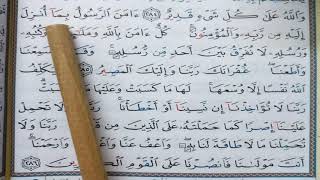 وَاللَّهُ عَلَىٰ كُلِّ شَيْءٍ قَدِيرٌ ﴿٢٨٤﴾ ءَامَنَ الرَّسُولُ بِمَا أُنْزِلَ
إِلَيْهِ مِنْ رَبِّهِ وَالْمُؤْمِنُونَ كُلٌّ ءَامَنَ بِاللَّهِ وَمَلَٰئِكَتِهِ وَكُتُبِهِ
وَرُسُلِهِ لَا نُفَرِّقُ بَيْنَ أَحَدٍ مِنْ رُسُلِهِ وَقَالُوا سَمِعْنَا
وَأَطَعْنَا غُفْرَانَكَ رَبَّنَا وَإِلَيْكَ الْمَصِيرُ ﴿٢٨٥﴾ لَا يُكَلِّفُ
اللَّهُ نَفْسًا إِلَّا وُسْعَهَا لَهَا مَا كَسَبَتْ وَعَلَيْهَا مَا اكْتَسَبَتْ
رَبَّنَا لَا تُؤَاخِذْنَا إِنْ نَسِينَا أَوْ أَخْطَأْنَا رَبَّنَا وَلَا تَحْمِلْ
عَلَيْنَا إِصْرًا كَمَا حَمَلْتَهُ عَلَى الَّذِينَ مِنْ قَبْلِنَا رَبَّنَا وَلَا
تُحَمِّلْنَا مَا لَا طَاقَةَ لَنَا بِهِ وَاعْفُ عَنَّا وَاغْفِرْ لَنَا وَارْحَمْنَا
أَنْتَ مَوْلَٰنَا فَانْصُرْنَا عَلَى الْقَوْمِ الْكَٰفِرِينَ ﴿٢٨٦﴾